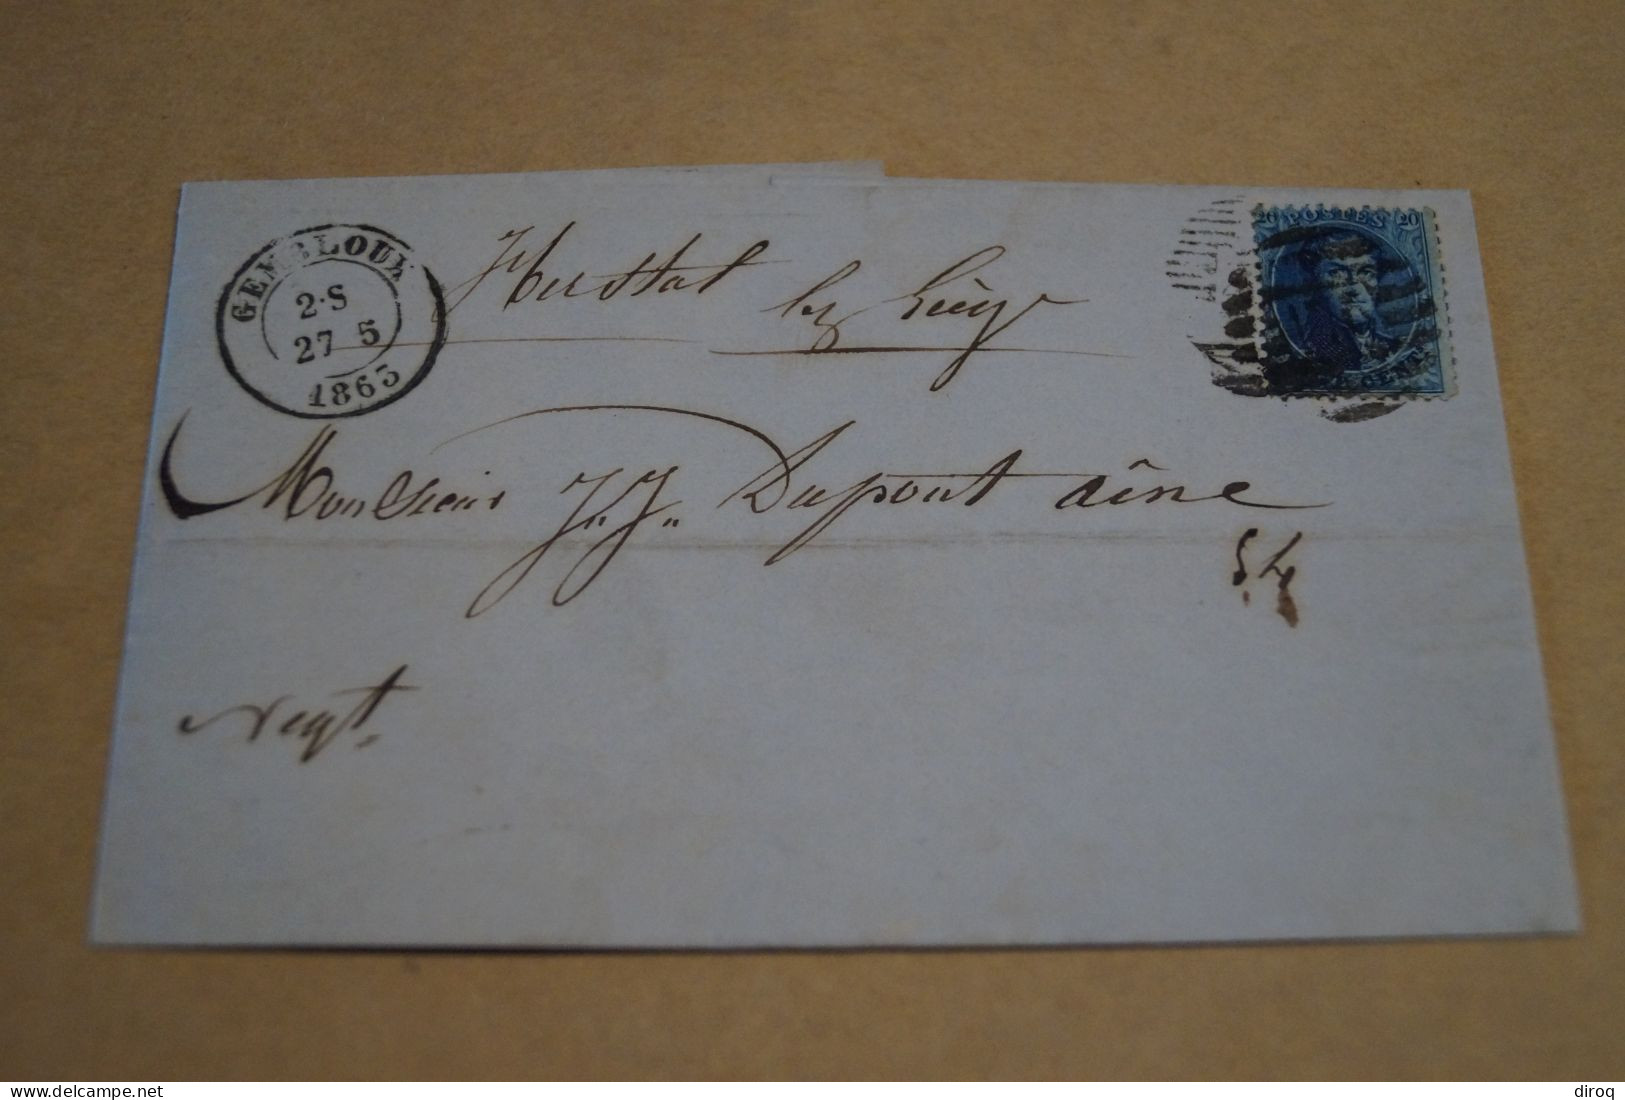 GEMBLOUX
2·S
27 5
1863
20 POSTES 20
CENT
Herstal
lez Liège
Monsieur J. J. Dupont aîné
Negt.
www.delcampe.net
diroq